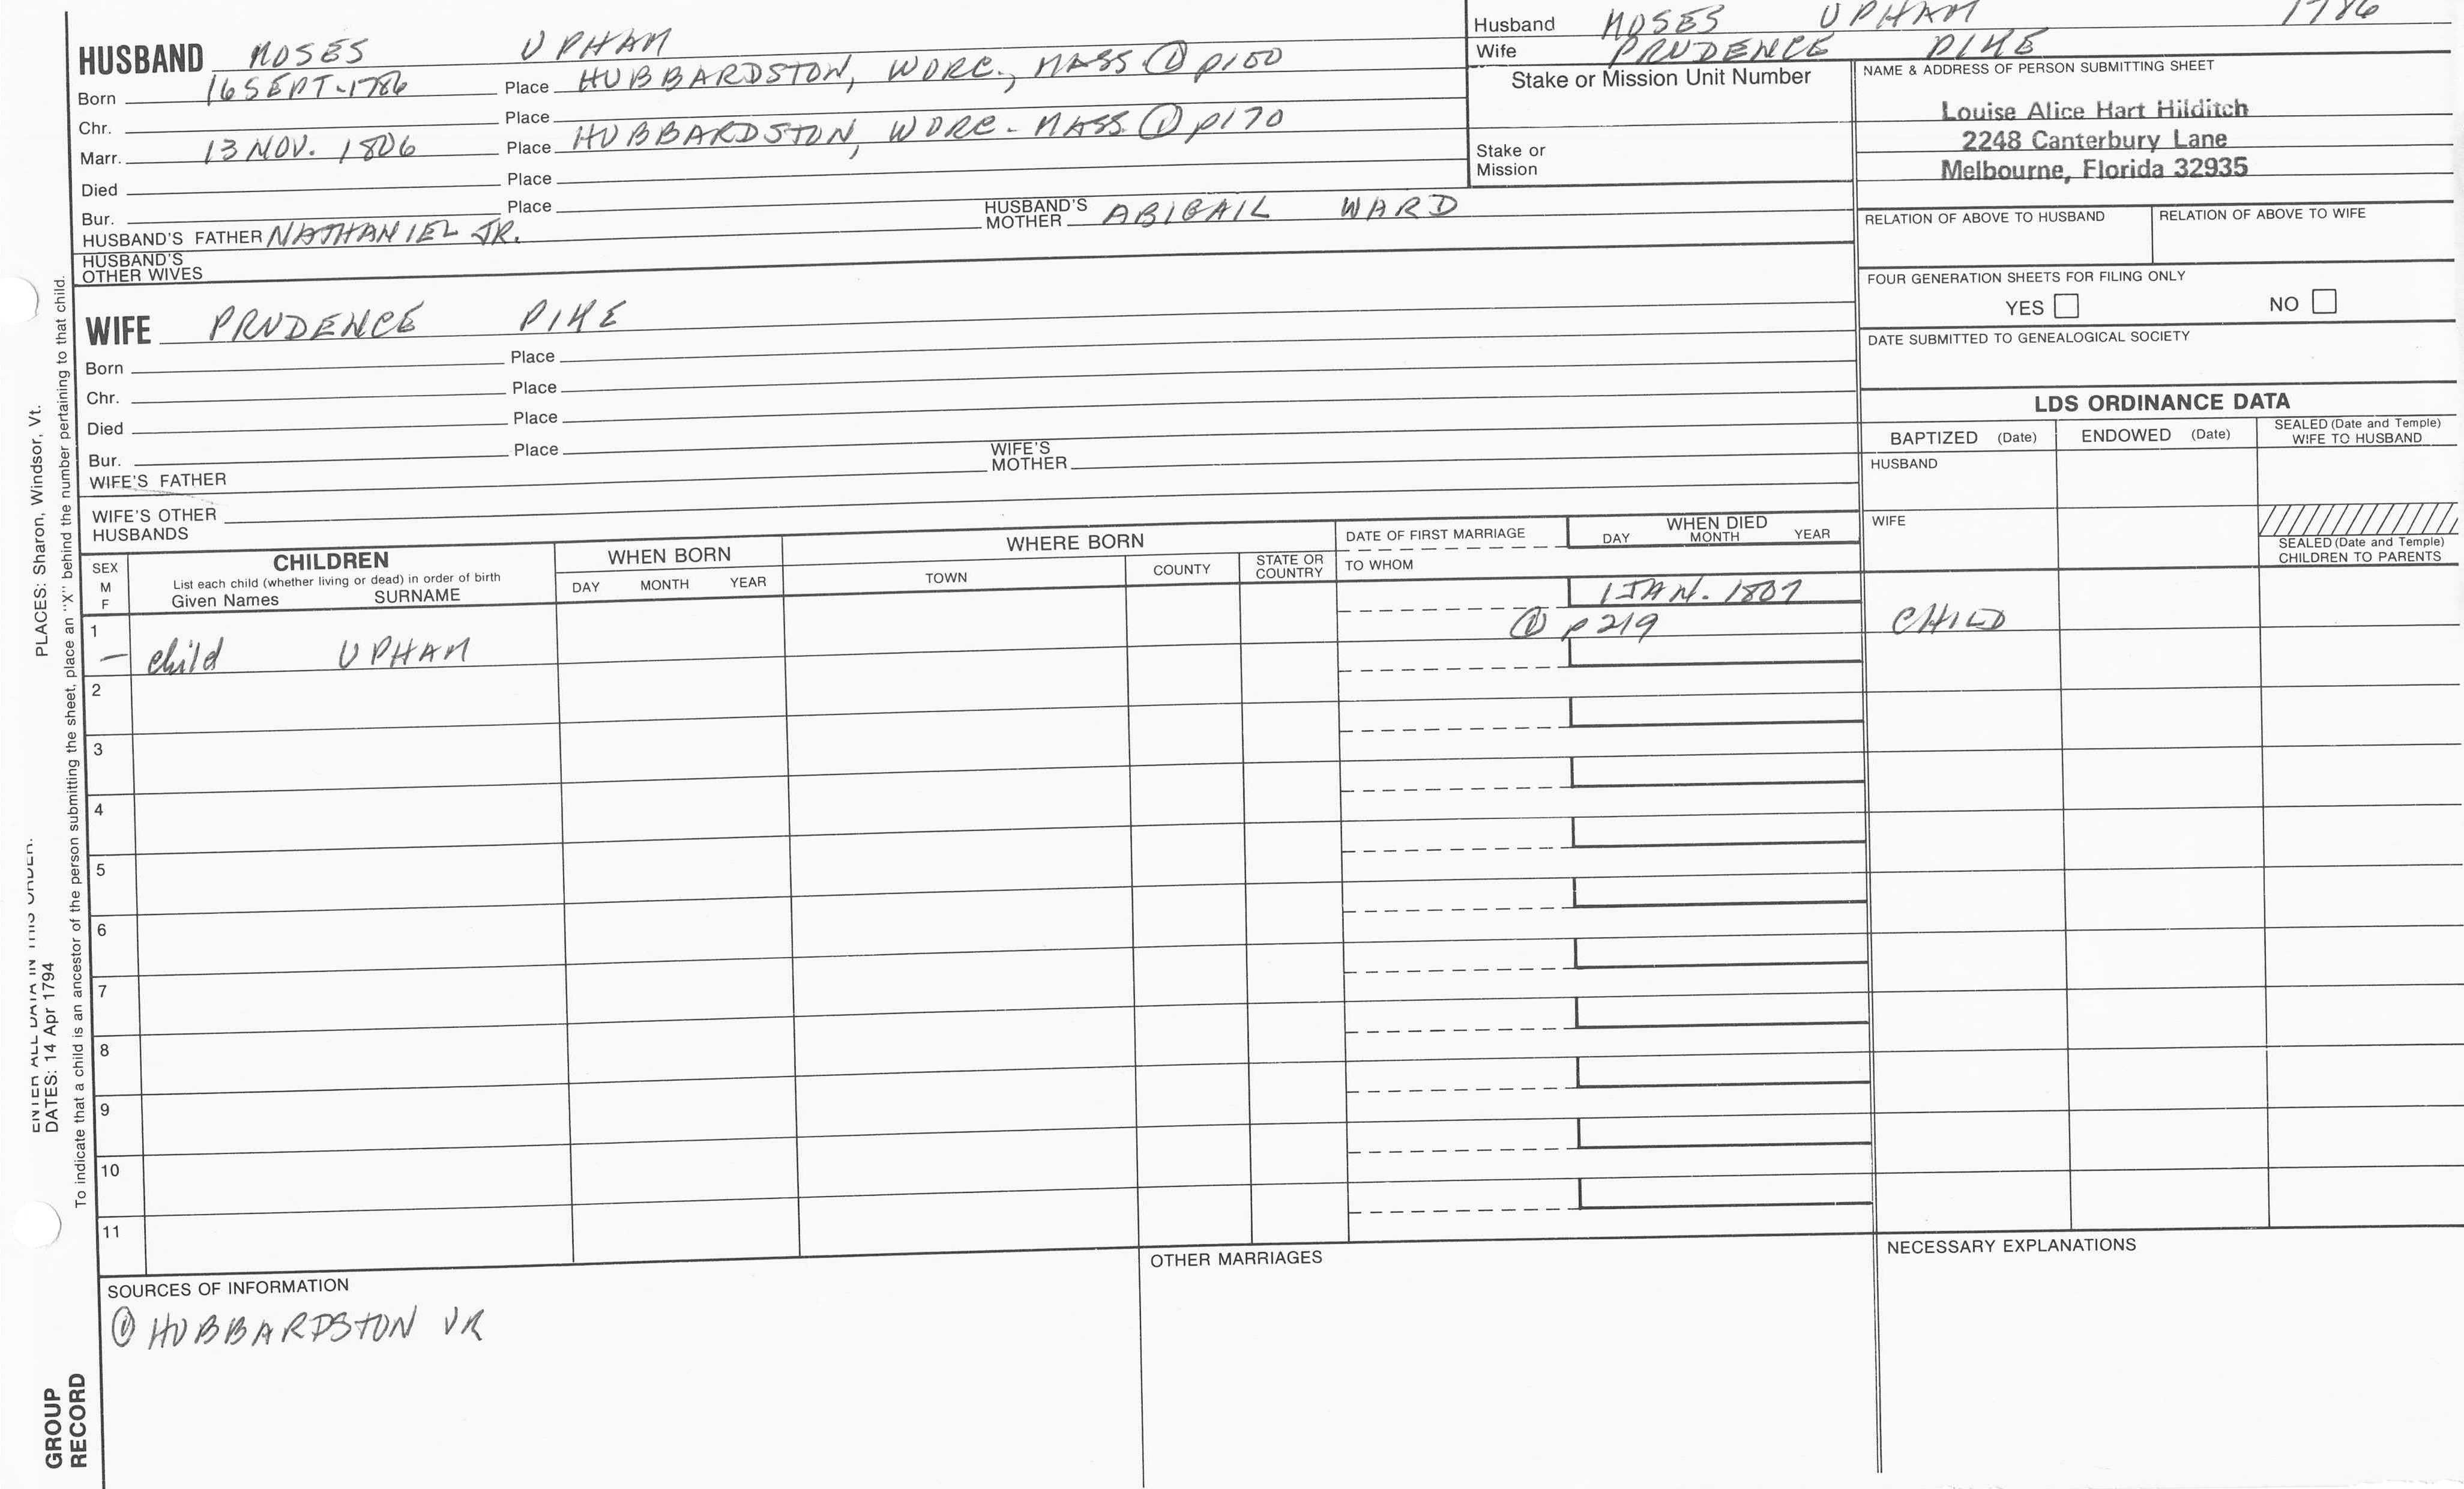 Husband MOSES UPHAM 1786
Wife PRUDENCE PIKE
HUSBAND MOSES UPHAM
Born 16 SEPT. 1786 Place HUBBARDSTON, WORC., MASS. ① p100
Chr. Place
Marr. 13 NOV. 1806 Place HUBBARDSTON, WORC. MASS. ① p170
Died Place
Bur. Place
HUSBAND'S FATHER NATHANIEL JR. HUSBAND'S MOTHER ABIGAIL WARD
HUSBAND'S
OTHER WIVES
Stake or Mission Unit Number
Stake or
Mission
NAME & ADDRESS OF PERSON SUBMITTING SHEET
Louise Alice Hart Hilditch
2248 Canterbury Lane
Melbourne, Florida 32935
RELATION OF ABOVE TO HUSBAND RELATION OF ABOVE TO WIFE
FOUR GENERATION SHEETS FOR FILING ONLY
YES NO
DATE SUBMITTED TO GENEALOGICAL SOCIETY
WIFE PRUDENCE PIKE
Born Place
Chr. Place
Died Place
Bur. Place
WIFE'S FATHER WIFE'S MOTHER
WIFE'S OTHER
HUSBANDS
LDS ORDINANCE DATA
BAPTIZED (Date) ENDOWED (Date) SEALED (Date and Temple) WIFE TO HUSBAND
HUSBAND
WIFE
SEALED (Date and Temple)
CHILDREN TO PARENTS
SEX
M
F
CHILDREN
List each child (whether living or dead) in order of birth
Given Names SURNAME
WHEN BORN
DAY MONTH YEAR
WHERE BORN
TOWN COUNTY STATE OR COUNTRY
DATE OF FIRST MARRIAGE
TO WHOM
WHEN DIED
DAY MONTH YEAR
1 JAN. 1807
1
① p219 CHILD
— child UPHAM
2
3
4
5
6
7
8
9
10
11
SOURCES OF INFORMATION
① HUBBARDSTON VR
OTHER MARRIAGES
NECESSARY EXPLANATIONS
ENTER ALL DATA IN THIS ORDER:
DATES: 14 Apr 1794 PLACES: Sharon, Windsor, Vt.
To indicate that a child is an ancestor of the person submitting the sheet, place an "X" behind the number pertaining to that child.
GROUP
RECORD